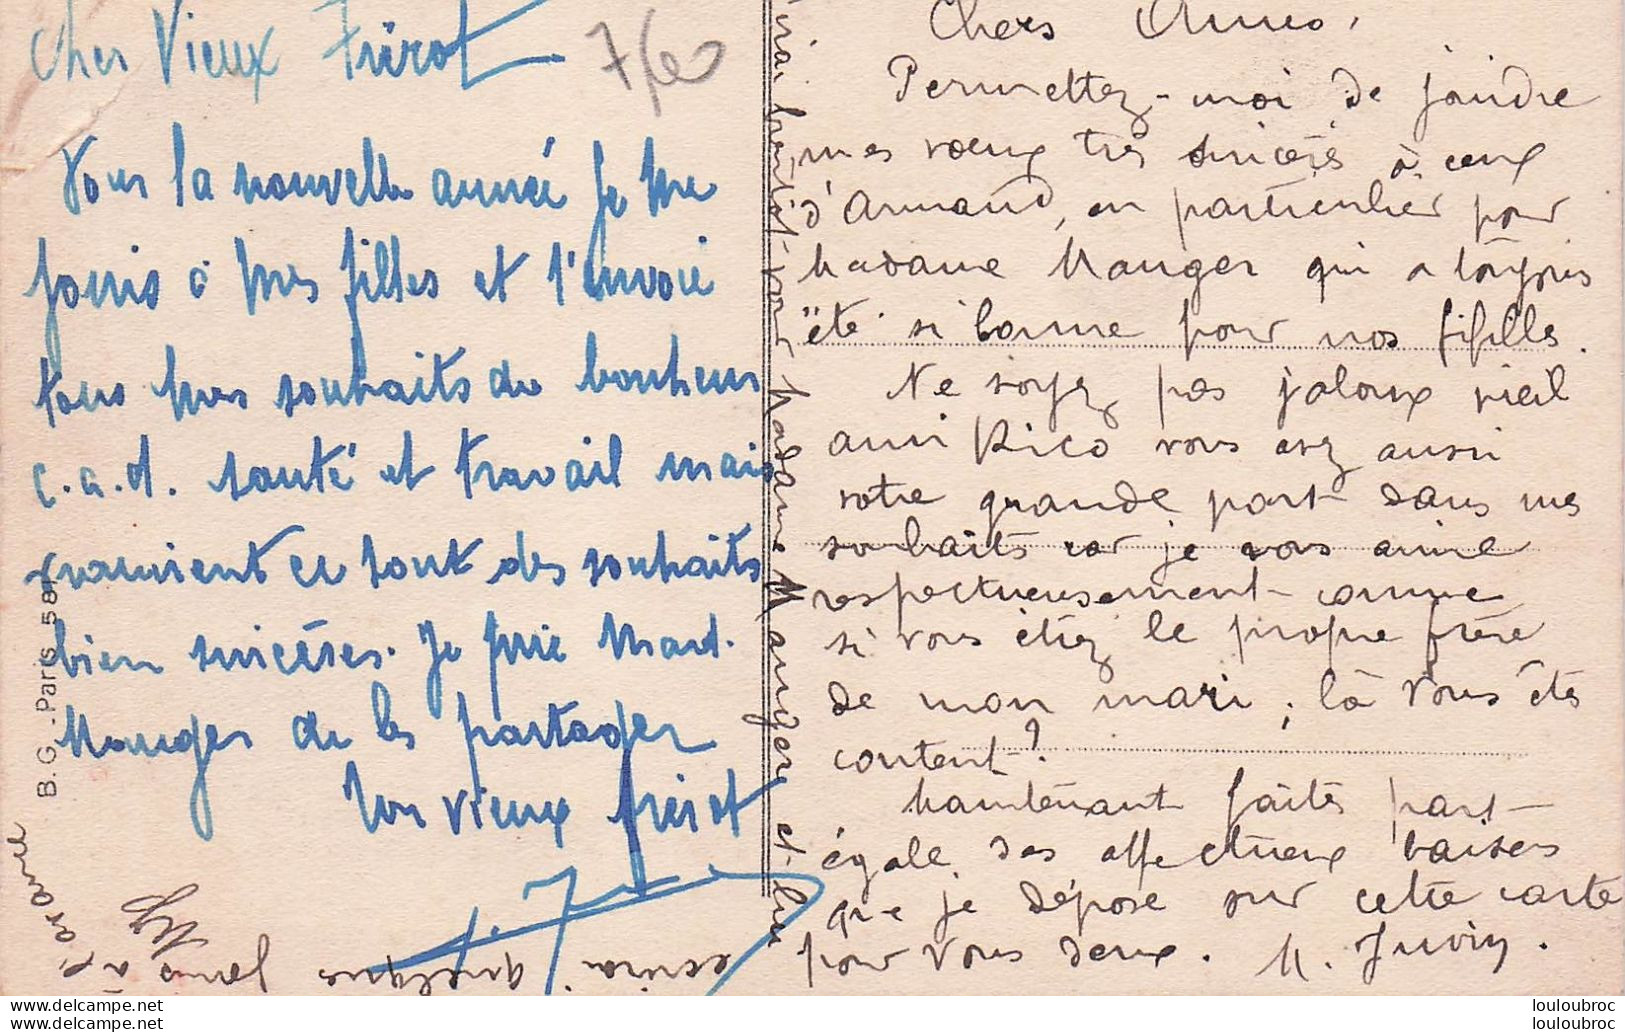 Cher Vieux Frérot
7/60
Pour la nouvelle année je me
joins à mes filles et t'envoie
tous mes souhaits de bonheur
c.a.d. santé et travail mais
vraiment ce sont des souhaits
bien sincères. Je prie Mad.
Mauger de les partager
Ton vieux frérot
B.G. Paris 581
Chers Amis,
Permettez-moi de joindre
mes voeux très sincères à ceux
d'Armand, en particulier pour
Madame Mauger qui a toujours
été si bonne pour nos fifilles.
Ne soyez pas jaloux vieil
ami Rico vous avez aussi
votre grande part dans mes
souhaits car je vous aime
respectueusement comme
si vous étiez le propre frère
de mon mari ; là vous êtes
content ?
Maintenant faites part
égale des affectueux baisers
que je dépose sur cette carte
pour vous deux. M. Juvin.
bientôt pour Madame Maugere et lui
écrirai quelques jours à
l'avance
MJ
louloubroc
louloubroc